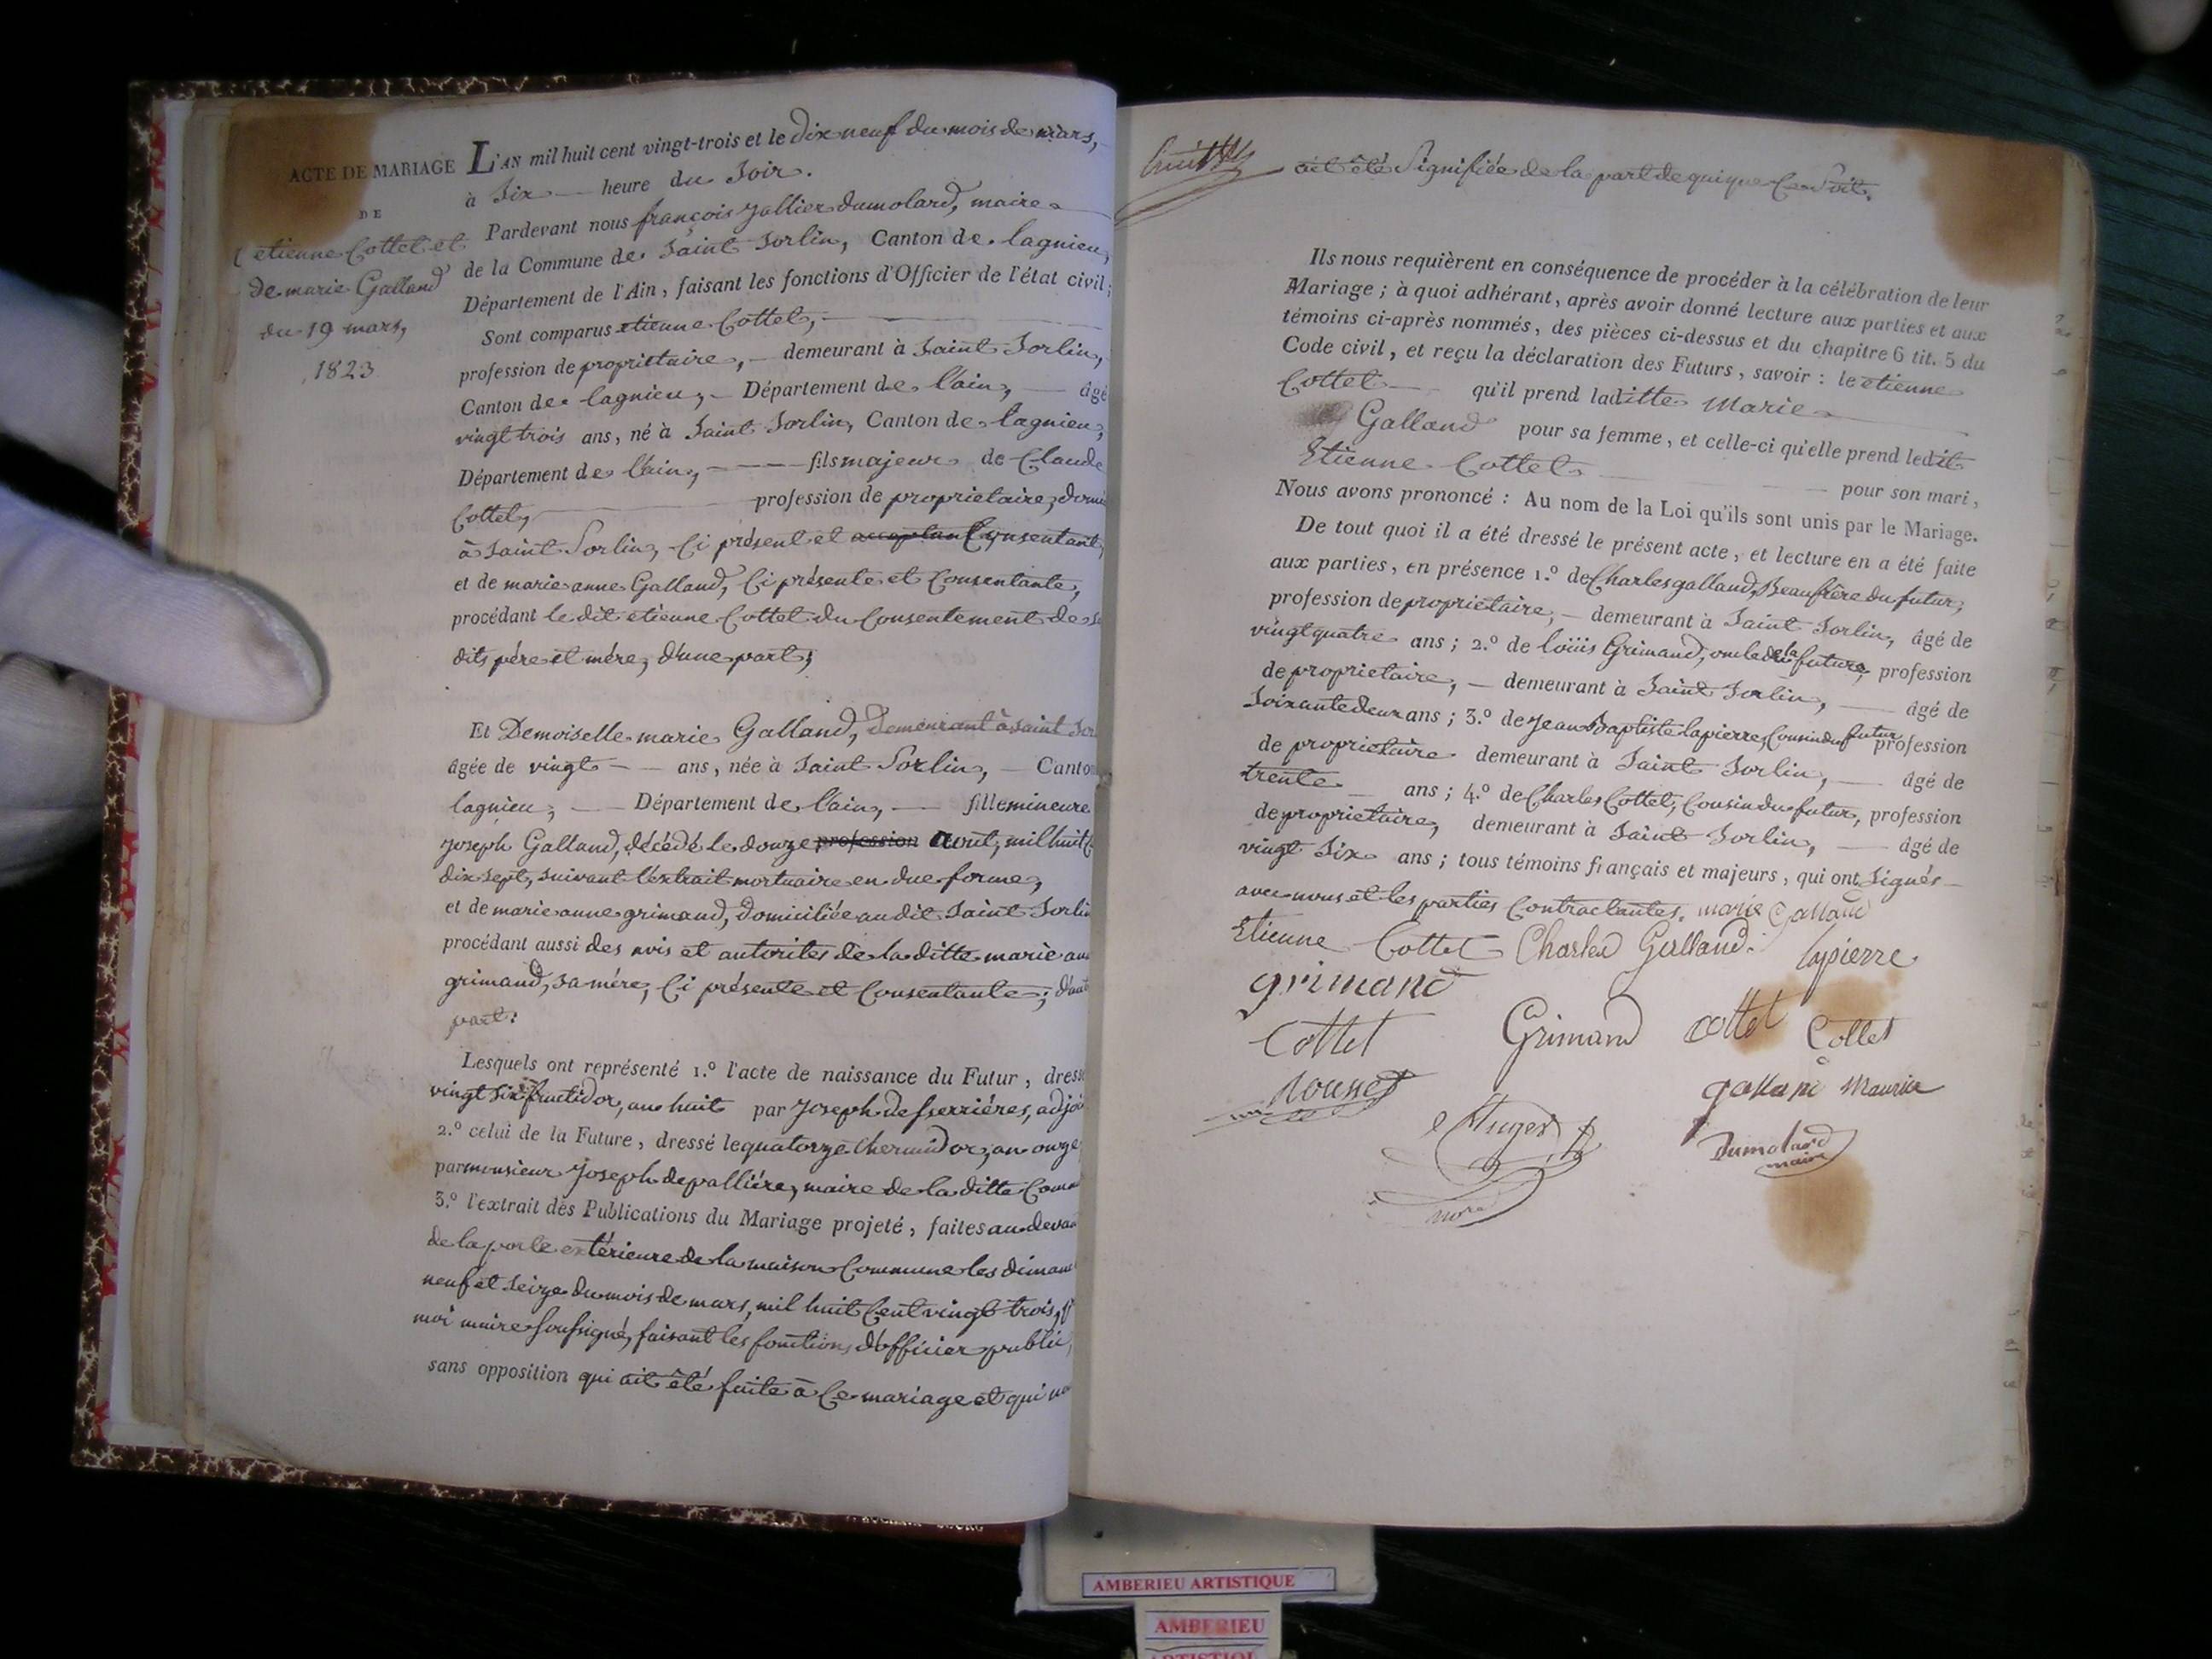 ACTE DE MARIAGE
DE
etienne Cottet et
de marie Galland
du 19 mars,
1823
L'AN mil huit cent vingt-trois et le dix neuf du mois de mars,
à Six heure du Soir.
Pardevant nous françois jallier dumolard, maire
de la Commune de Saint Sorlin, Canton de lagnieu,
Département de l'Ain, faisant les fonctions d'Officier de l'état civil;
Sont comparus etienne Cottet,
profession de propriettaire, demeurant à Saint Sorlin,
Canton de lagnieu, Département de l'ain, âgé
vingt trois ans, né à Saint Sorlin, Canton de lagnieu,
Département de l'ain, fils majeur de Claude
Cottet, profession de proprietaire, domi
à Saint Sorlin, Ci présent et acceptant Consentant,
et de marie anne Galland, Ci présente et Consentante,
procédant le dit etienne Cottet du Consentement de
dits pére et mére, d'une part;
Et Demoiselle marie Galland, demeurant à Saint Sor
âgée de vingt ans, née à Saint Sorlin, Canton
lagnieu, Département de l'ain, fille mineure
joseph Galland, décédé le douze profession aout, mil huit C
dix sept, suivant l'extrait mortuaire en due forme,
et de marie anne grimand, domiciliée au dit Saint Sorlin
procédant aussi des avis et autorites de la ditte marie an
grimand, sa mére, Ci présente et Consentante; d'aut
part.
Lesquels ont représenté 1.º l'acte de naissance du Futur, dressé
vingt Six fructidor, an huit par Joseph desferriéres, adjoi
2.º celui de la Future, dressé le quatorze thermidor, an onze,
par monsieur Joseph depalliére, maire de la ditte Comm
3.º l'extrait des Publications du Mariage projeté, faites au devan
de la porte extérieure de la maison Commune les diman
neuf et Seize du mois de mars, mil huit Cent vingt trois,
moi maire Soussigné, faisant les fonctions d'officier public,
sans opposition qui ait été faite à Ce mariage et qui no
huit
ait été Signifiée de la part de qui que Ce Soit.
Ils nous requièrent en conséquence de procéder à la célébration de leur
Mariage; à quoi adhérant, après avoir donné lecture aux parties et aux
témoins ci-après nommés, des pièces ci-dessus et du chapitre 6 tit. 5 du
Code civil, et reçu la déclaration des Futurs, savoir: le etienne
Cottet qu'il prend laditte Marie
Galland pour sa femme, et celle-ci qu'elle prend ledit
Etienne Cottet pour son mari,
Nous avons prononcé: Au nom de la Loi qu'ils sont unis par le Mariage.
De tout quoi il a été dressé le présent acte, et lecture en a été faite
aux parties, en présence 1.º de Charles galland, Beaufrère du futur,
profession de proprietaire, demeurant à Saint Sorlin, âgé de
vingt quatre ans; 2.º de loüis Grimand, oncle de la future, profession
de proprietaire, demeurant à Saint Sorlin, âgé de
Soixante deux ans; 3.º de Jean Baptiste lapierre, Cousin du futur profession
de proprietaire demeurant à Saint Sorlin, âgé de
trente ans; 4.º de Charles Cottet, Cousin du futur, profession
de proprietaire, demeurant à Saint Sorlin, âgé de
vingt Six ans; tous témoins français et majeurs, qui ont Signés
avec nous et les parties Contractantes. marie Galland
Etienne Cottet Charles Galland lapierre
grimand
Cottet Grimand cottet Collet
galland Maurier
Dumolard
maire
AMBERIEU ARTISTIQUE
AMBERIEU
ARTISTIQUE